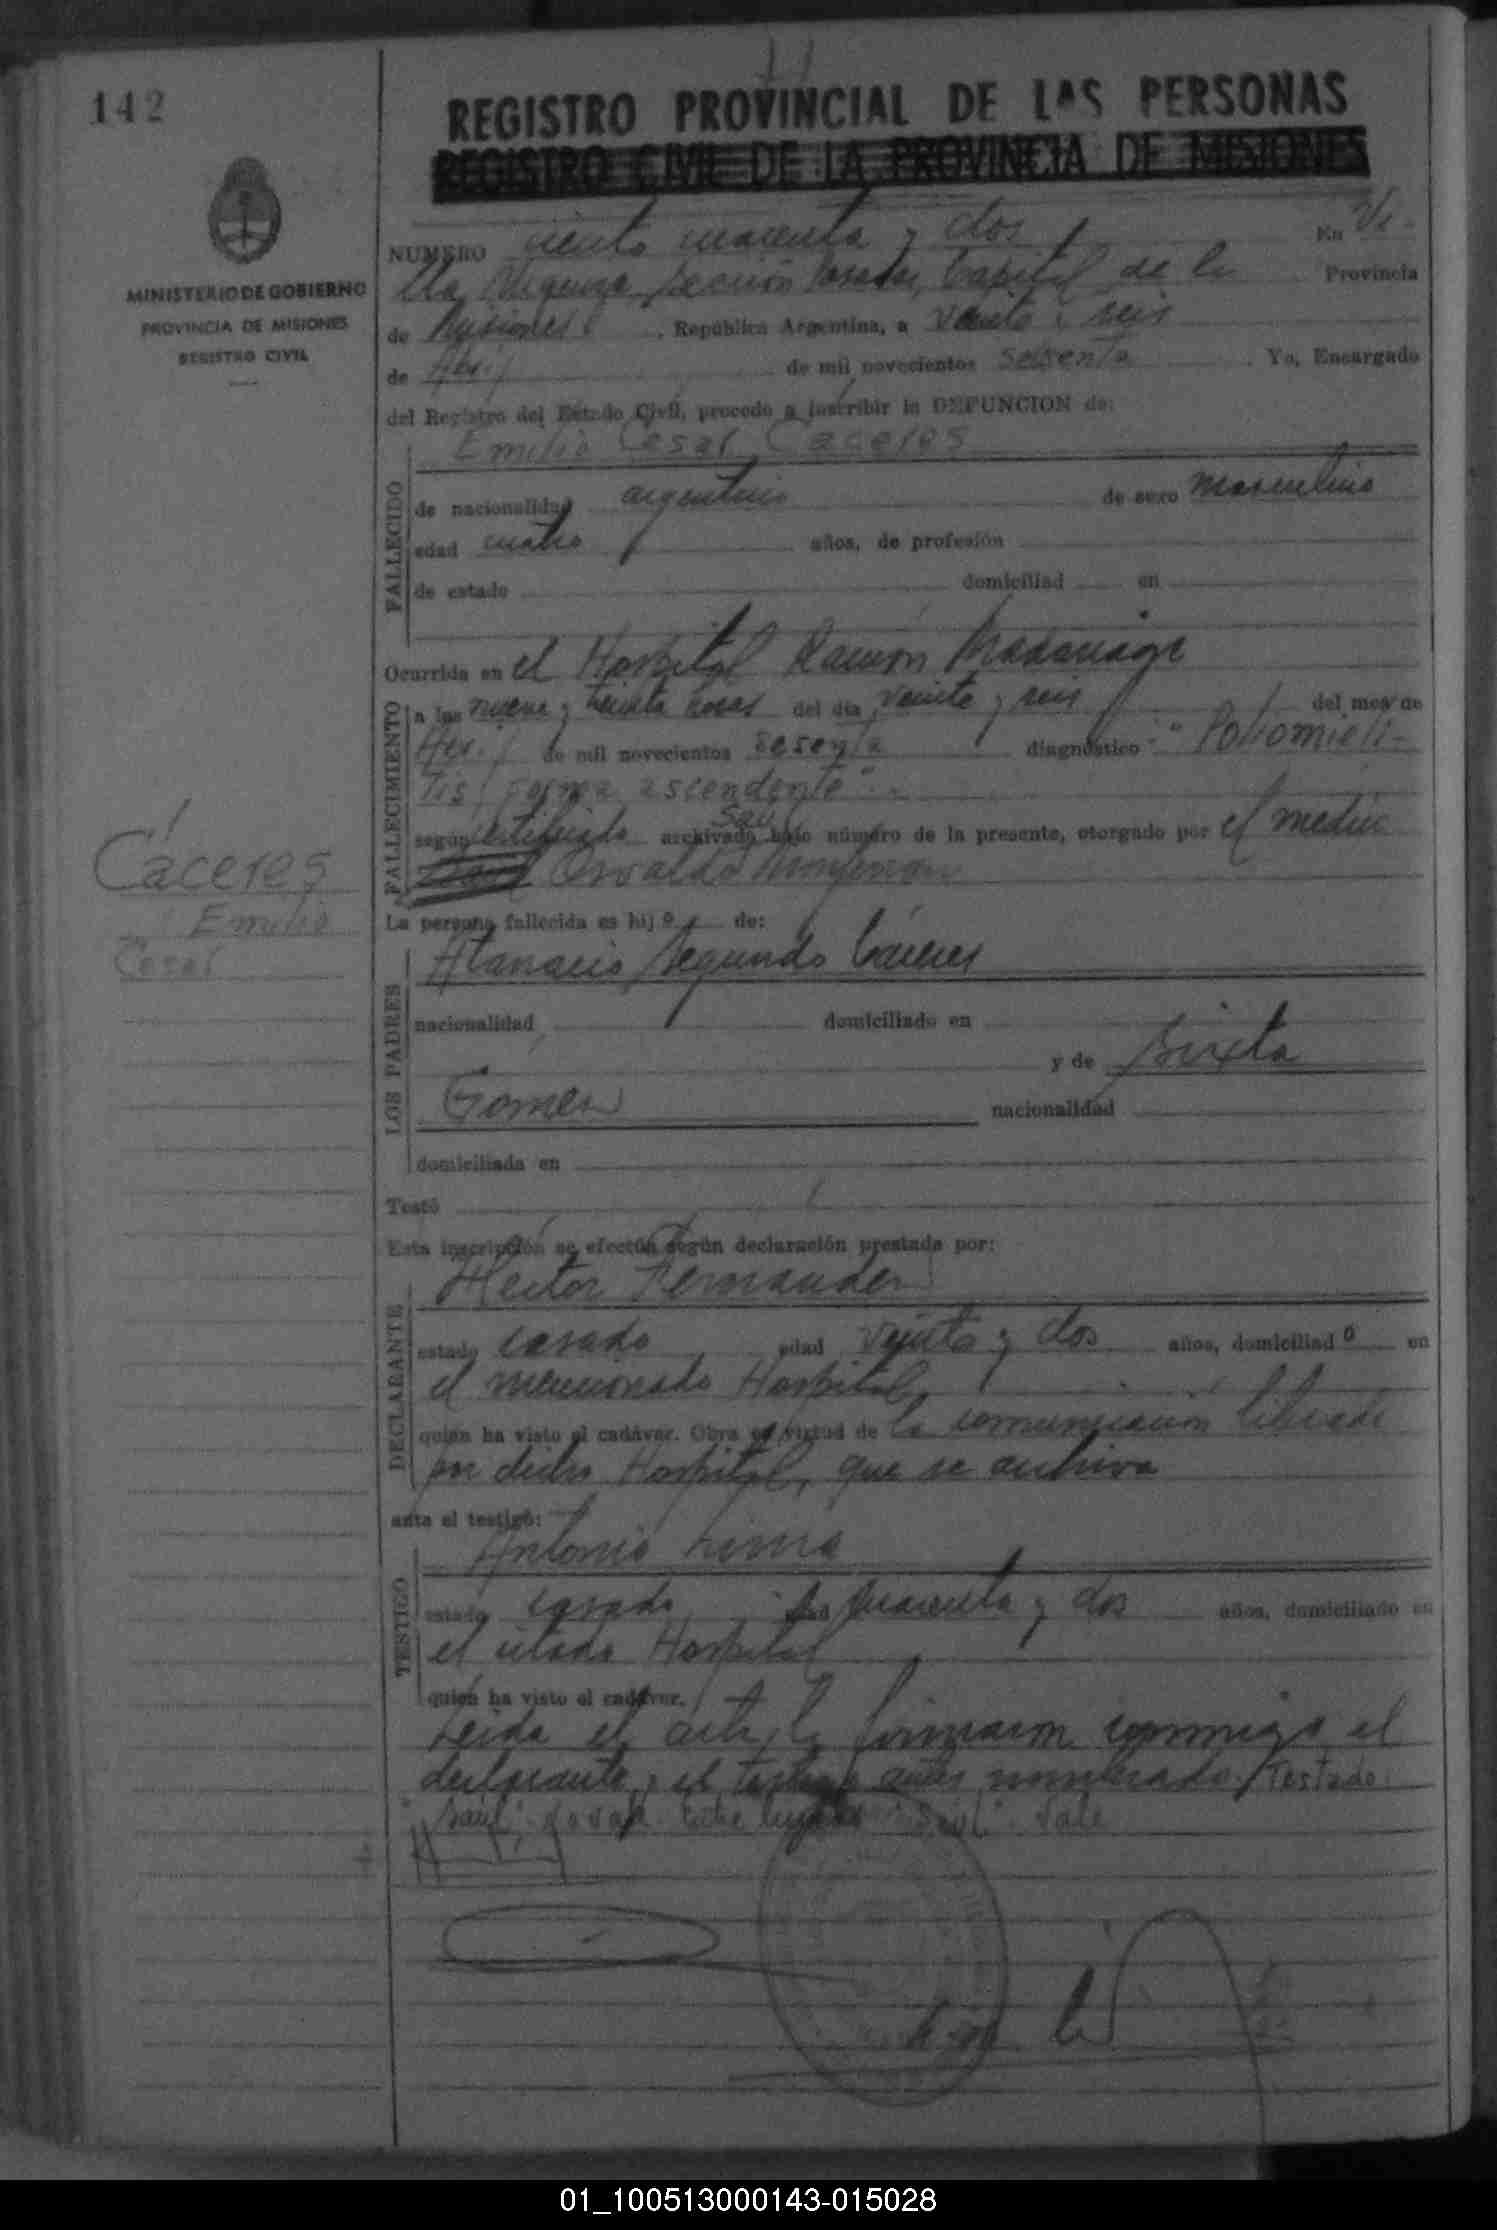 142
REGISTRO PROVINCIAL DE LAS PERSONAS
REGISTRO CIVIL DE LA PROVINCIA DE MISIONES
MINISTERIO DE GOBIERNO
PROVINCIA DE MISIONES
REGISTRO CIVIL
NUMERO ciento cuarenta y dos En Vi-
lla Urquiza, Sección Posadas, Capital de la Provincia
de Misiones, República Argentina, a veinte y seis
de Abril de mil novecientos sesenta. Yo, Encargado
del Registro del Estado Civil, procedo a inscribir la DEFUNCION de:
Emilio Cesar Caceres
FALLECIDO
de nacionalidad argentino de sexo masculino
edad cuatro años, de profesión
de estado domiciliad en
Ocurrida en el Hospital Ramón Madariaga
FALLECIMIENTO
a las nueve y treinta horas del día veinte y seis del mes de
Abril de mil novecientos sesenta diagnóstico: "Poliomieli-
tis forma ascendente".
según certificado archivado bajo número de la presente, otorgado por el medico
Saúl
Osvaldo
Cáceres
Emilio
Cesar
La persona fallecida es hijo de:
LOS PADRES
Atanacio Segundo Cáceres
nacionalidad domiciliado en
y de Sixta
Gomez nacionalidad
domiciliada en
Testó
Esta inscripción se efectúa según declaración prestada por:
DECLARANTE
Hector Fernandez
estado casado edad veinte y dos años, domiciliado en
el mencionado Hospital
quien ha visto el cadáver. Obra en virtud de la comunicación librada
por dicho Hospital, que se archiva
ante el testigo:
TESTIGO
Antonio Lima
estado casado edad cuarenta y dos años, domiciliado en
el citado Hospital
quien ha visto el cadáver.
Leida el acta, la firmaron conmigo el
declarante y el testigo antes nombrado. Testado:
"Saúl": no vale. Entre lineas: "Saúl": Vale
01_100513000143-015028